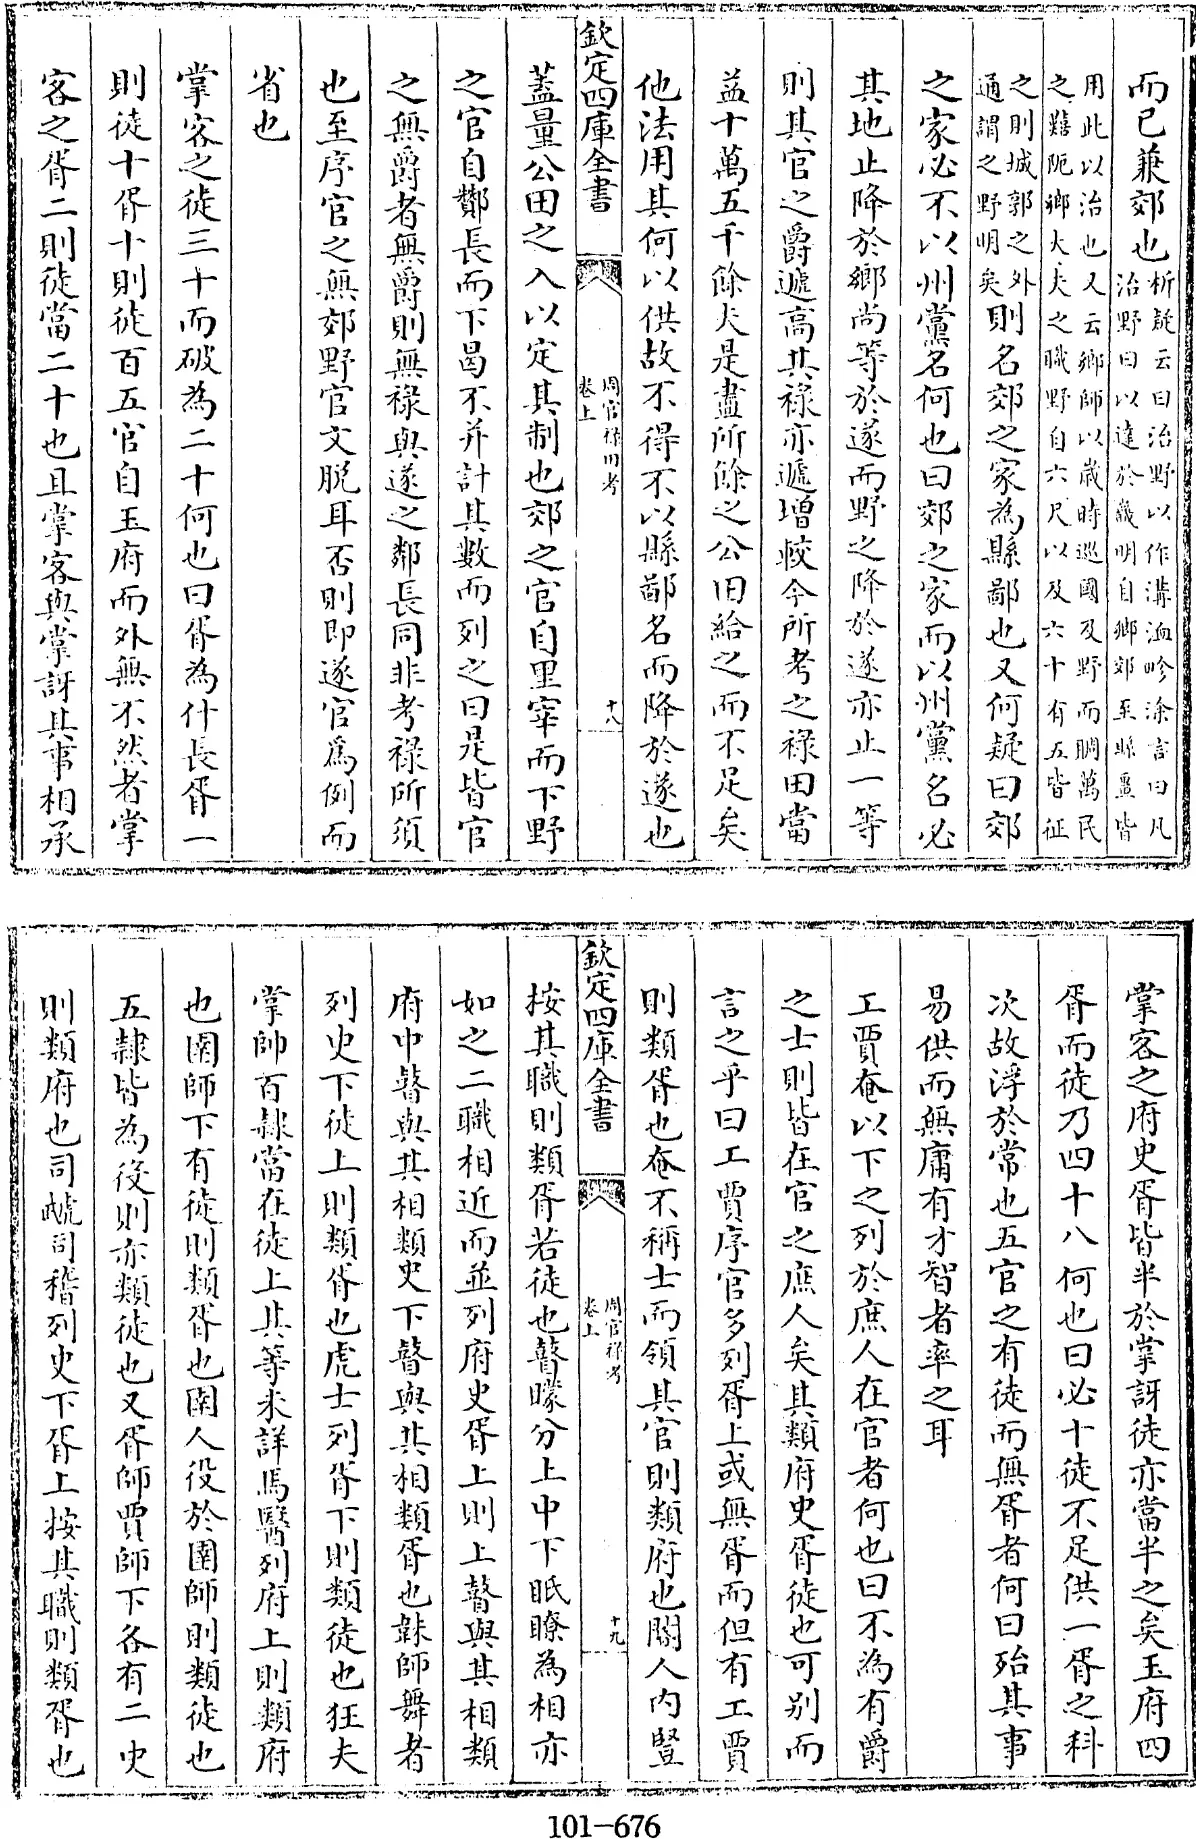 而已兼郊也析疑云曰治野以作溝洫畛涂言曰凡
治野曰以達於畿明自鄉郊至縣畺皆
用此以治也又云鄉師以歲時巡國及野而賙萬民
之囏阨鄉大夫之職野自六尺以及六十有五皆征
之則城郭之外
通謂之野明矣則名郊之家為縣鄙也又何疑曰郊
之家必不以州黨名何也曰郊之家而以州黨名必
其地止降於鄉尚等於遂而野之降於遂亦止一等
則其官之爵遞高其祿亦遞增較今所考之祿田當
益十萬五千餘夫是盡所餘之公田給之而不足矣
他法用其何以供故不得不以縣鄙名而降於遂也
欽定四庫全書
周官祿田考
卷上
十八
蓋量公田之入以定其制也郊之官自里宰而下野
之官自酇長而下曷不并計其數而列之曰是皆官
之無爵者無爵則無祿與遂之鄰長同非考祿所須
也至序官之無郊野官文脫耳否則即遂官爲例而
省也
掌客之徒三十而破為二十何也曰胥為什長胥一
則徒十胥十則徒百五官自玉府而外無不然者掌
客之胥二則徒當二十也且掌客與掌訝其事相承
掌客之府史胥皆半於掌訝徒亦當半之矣玉府四
胥而徒乃四十八何也曰必十徒不足供一胥之科
次故浮於常也五官之有徒而無胥者何曰殆其事
易供而無庸有才智者率之耳
工賈奄以下之列於庶人在官者何也曰不為有爵
之士則皆在官之庶人矣其類府史胥徒也可别而
言之乎曰工賈序官多列胥上或無胥而但有工賈
則類胥也奄不稱士而領其官則類府也閽人內豎
欽定四庫全書
周官祿田考
卷上
十九
按其職則類胥若徒也瞽矇分上中下眂瞭為相亦
如之二職相近而並列府史胥上則上瞽與其相類
府中瞽與其相類史下瞽與其相類胥也韎師舞者
列史下徒上則類胥也虎士列胥下則類徒也狂夫
掌帥百隸當在徒上其等未詳馬醫列府上則類府
也圉師下有徒則類胥也圉人役於圉師則類徒也
五隸皆為役則亦類徒也又胥師賈師下各有二史
則類府也司虣司稽列史下胥上按其職則類胥也
101-676